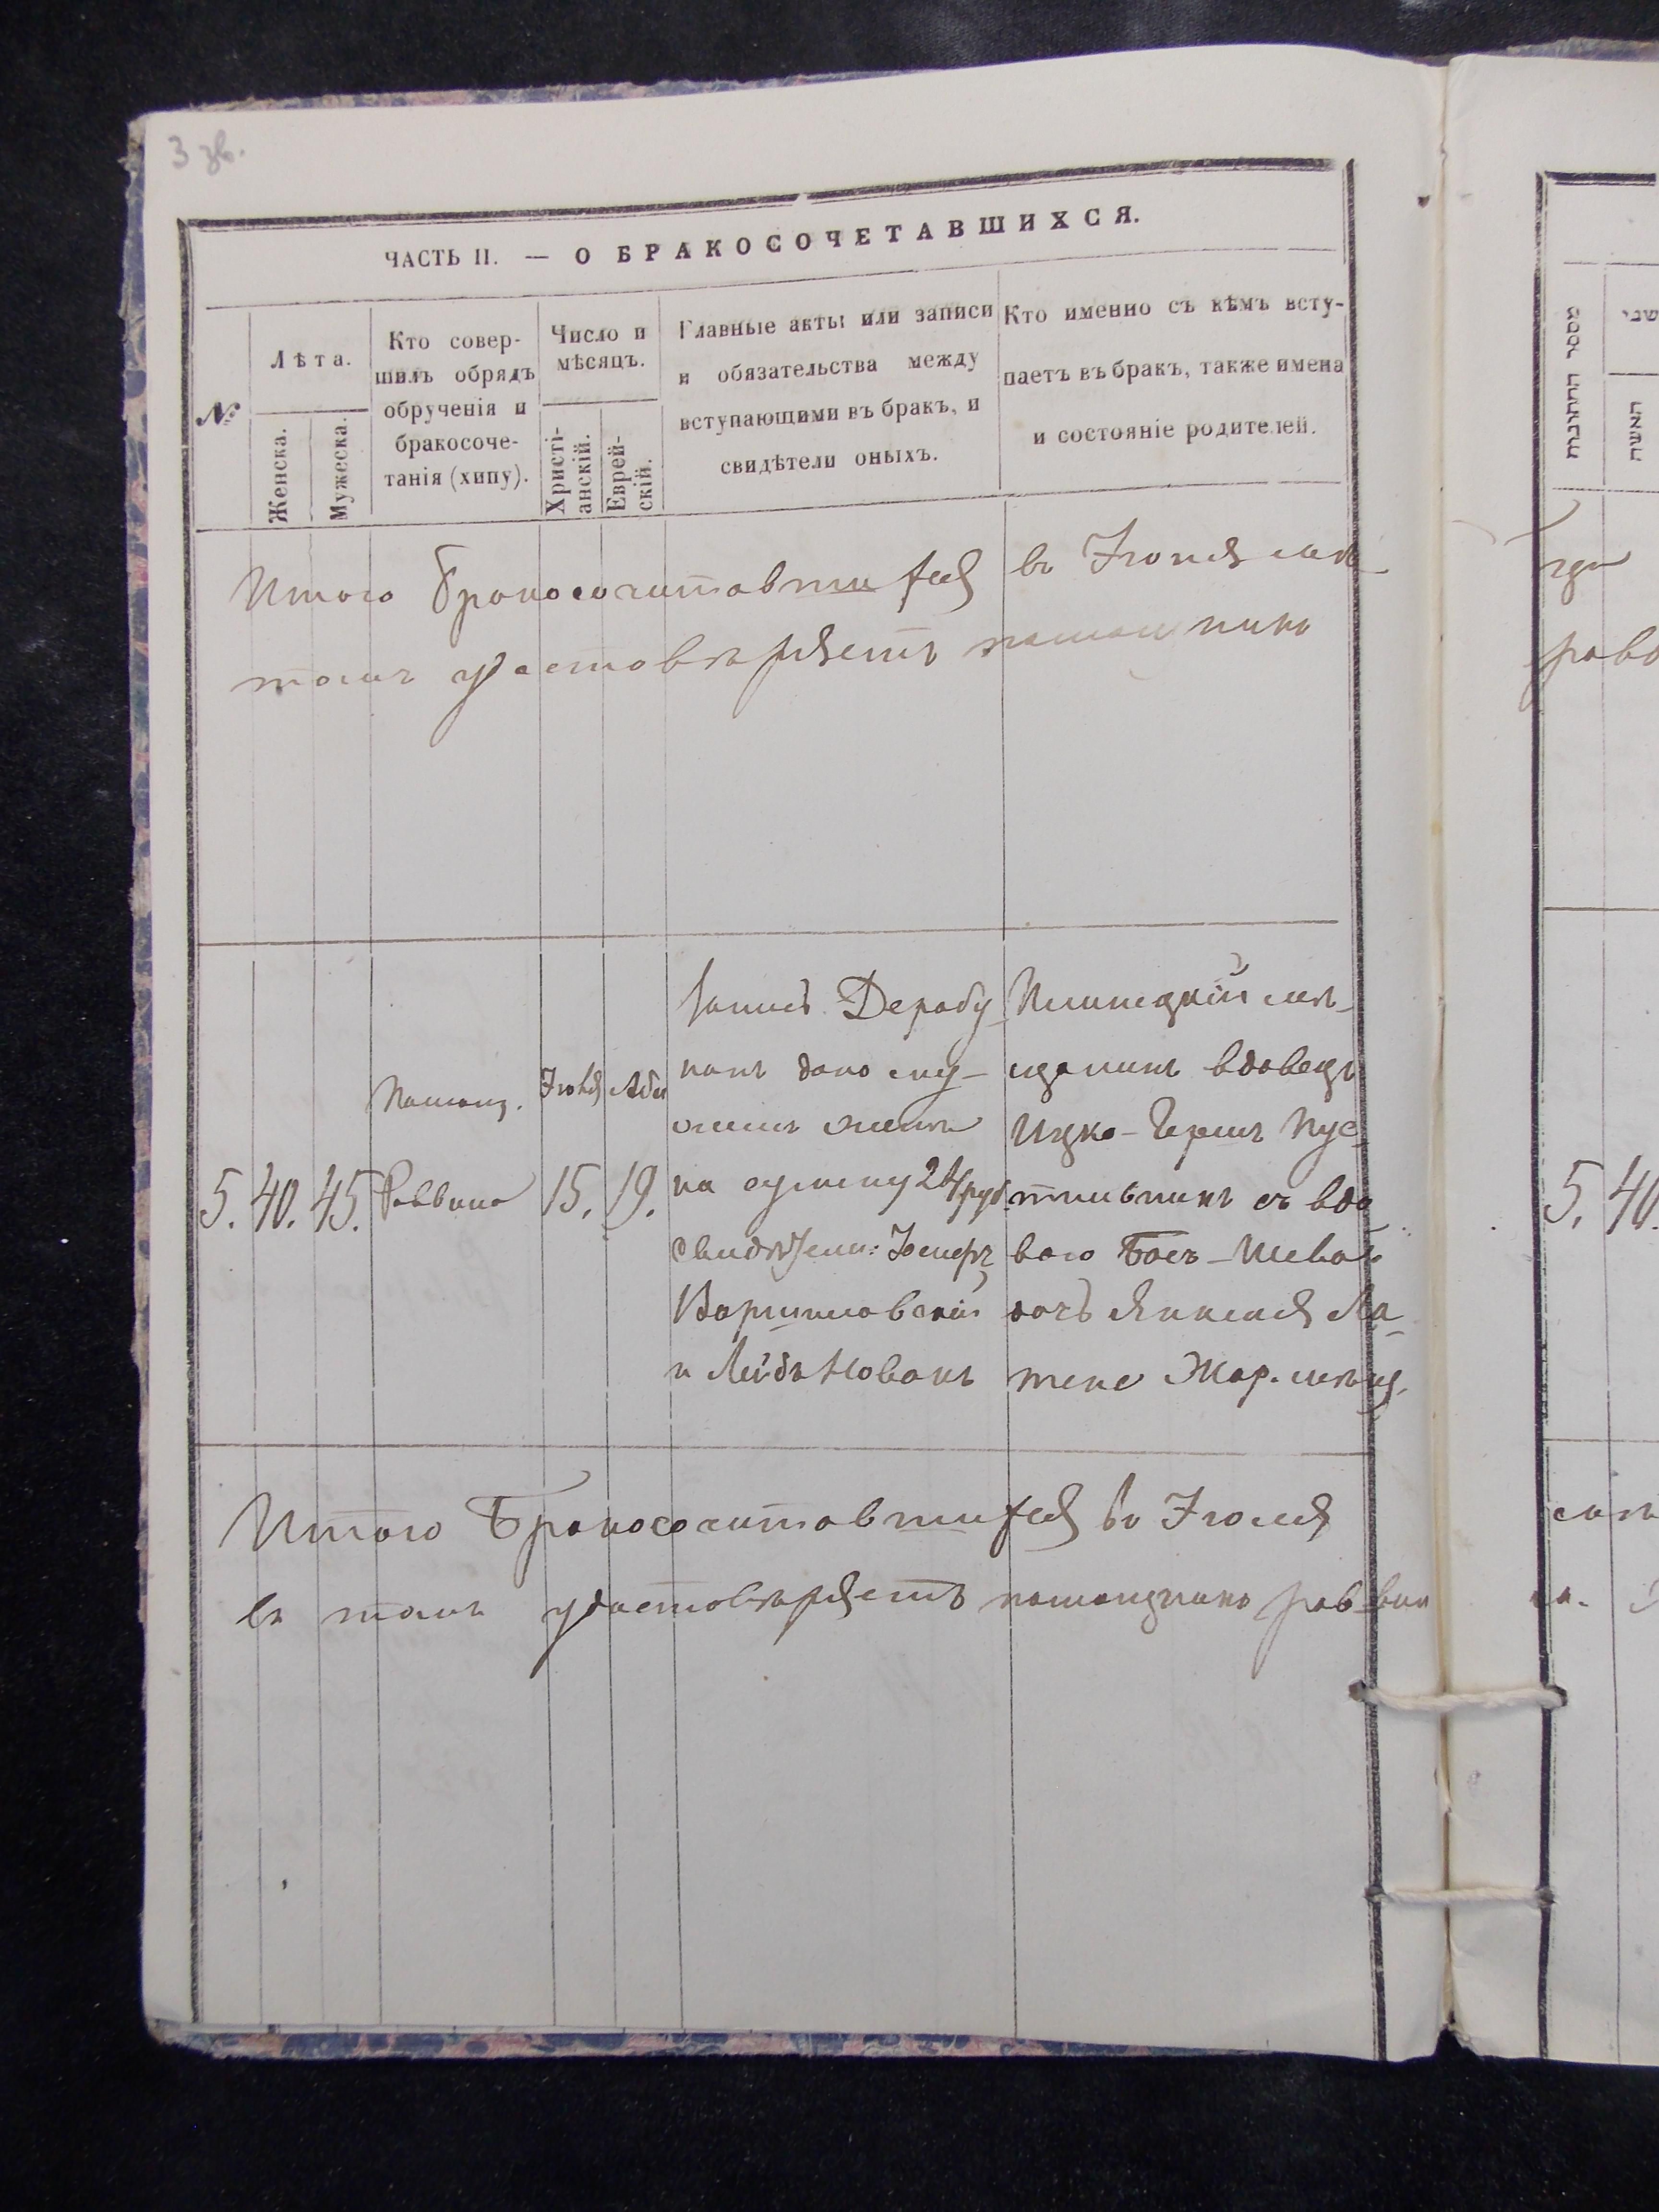 3 зв.
ЧАСТЬ II. — О БРАКОСОЧЕТАВШИХСЯ.
№
Лѣта.
Женска.
Мужеска.
Кто совер-
шилъ обрядъ
обрученія и
бракосоче-
танія (хипу).
Число и
мѣсяцъ.
Христі-
анскій.
Еврей-
скій.
Главные акты или записи
и обязательства между
вступающими въ бракъ, и
свидѣтели оныхъ.
Кто именно съ кѣмъ всту-
паетъ въ бракъ, также имена
и состояніе родителей.
Итого бракосочитавшихся въ Іюнѣ мѣ-
томъ удостовѣряетъ помощникъ
5. 40. 45.
Помощ.
Раввина
Іюля
15.
Абъ
19.
Запись Дерабу-
нанъ дано му-
жемъ женѣ
на сумму 24 руб.
Свидѣтели:
Варшиловскій
и Лейба Новакъ
мѣ-
щанинъ вдовецъ
Ицко-Гершъ Пус-
тильникъ съ вдо-
вою Бася-Шевою
дочь Янкеля
Итого Бракосочитавшихся въ Іюлѣ
въ томъ удостовѣряетъ помощникъ раввин
מספר החתונות
שני
האשה
раво
5. 40.